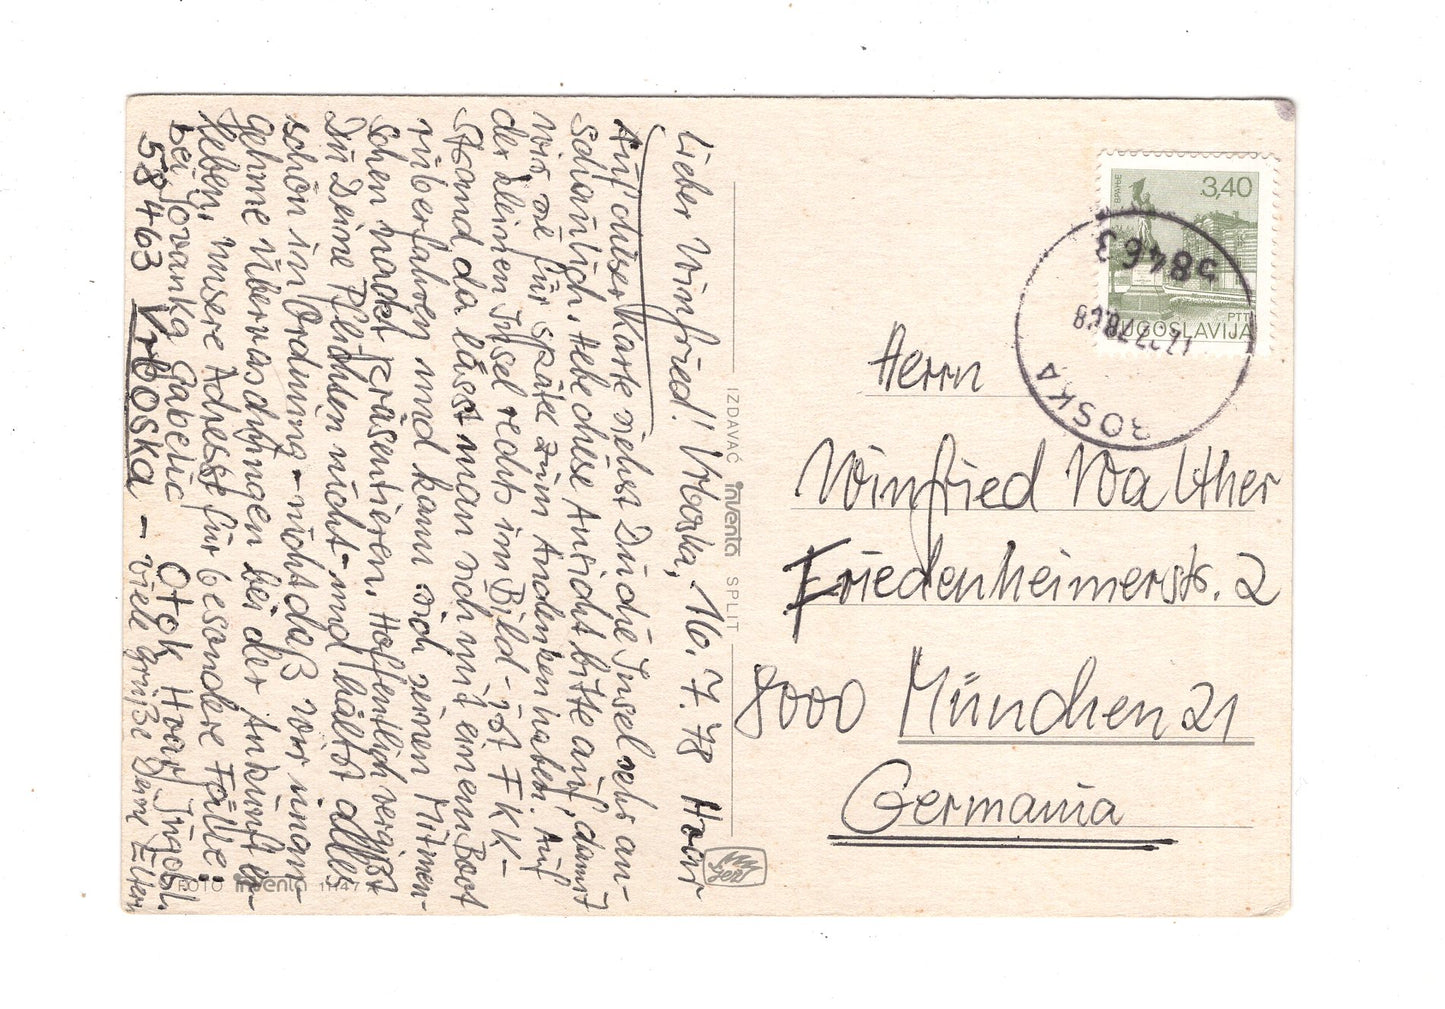 Lieber Winfried! Vrboska, 16. 7. 78 Hvar
Auf dieser Karte siehst Du die Insel sehr an-
schaulich. Hebe diese Ansicht bitte auf, damit
wir sie für später zum Andenken haben. Auf
der kleinen Insel rechts im Bild - ist FKK-
Strand, da lässt man sich mit einem Boot
rüberfahren und kann sich seinen Mitmen-
schen nackt präsentieren. Hoffentlich vergißt
Du Deine Pflichten nicht - und hältst alles
schön in Ordnung - nicht daß wir unan-
gehme Überraschungen bei der Ankunft er-
leben, unsere Adresse für besondere Fälle:
bei Jovanka Gabelic Otok Hvar Jugosl.
58463 Vrboska - viele Grüße Deine Eltern
FOTO inventa
IZDAVAČ inventa SPLIT
ВРАЊЕ
3,40
PTT
JUGOSLAVIJA
58463
BOSKA
Herrn
Winfried Walther
Friedenheimerstr. 2
8000 München 21
Germania